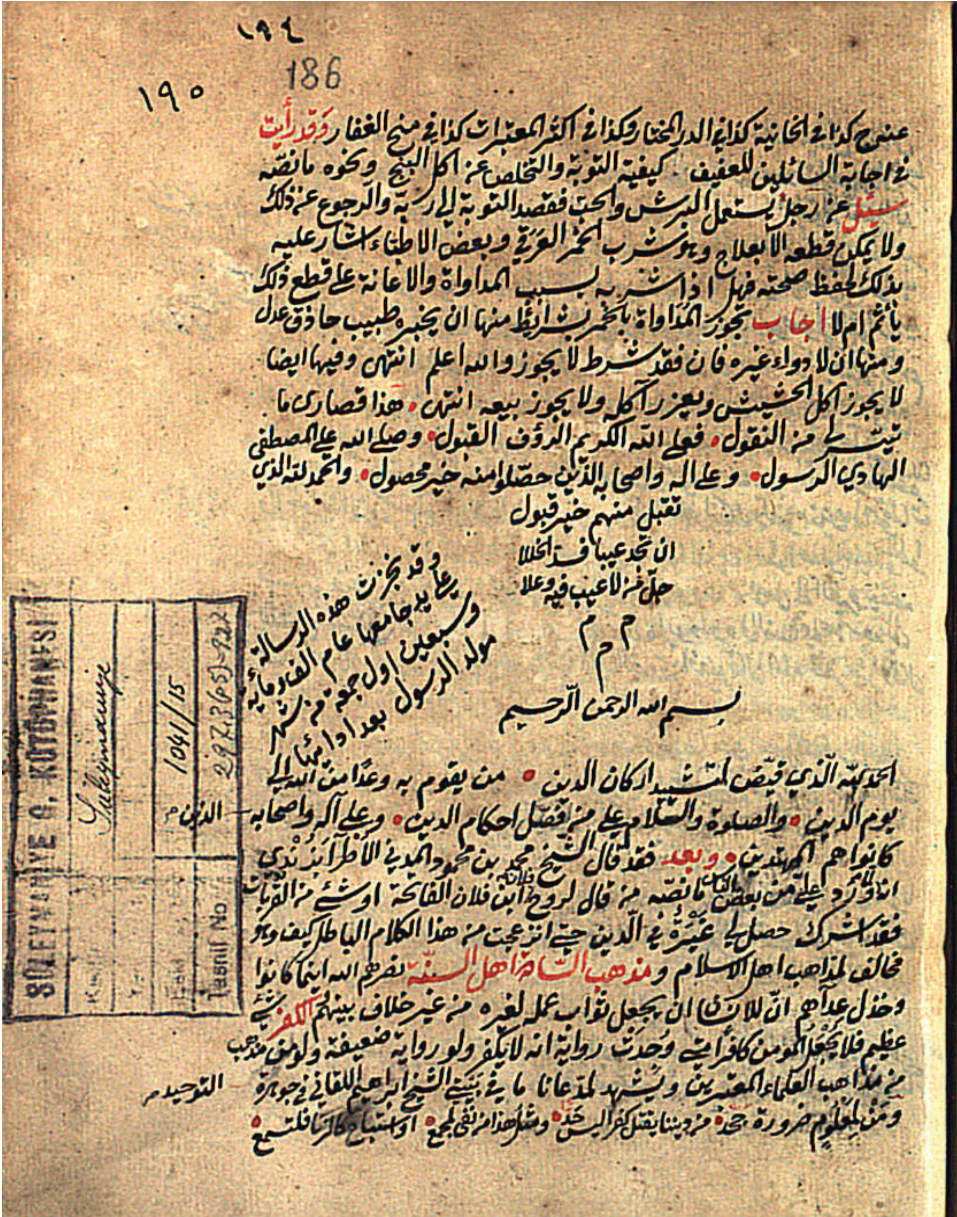 ١٩٤
186
١٩٥
عنہ كذا في الخانية كذا في الدر المختار وكذا في اكثر المعتبرات كذا في منح الغفار وقد رأيت
في اجابة السائلين للعفيف كيفية التوبة والتخلص عن اكل البنج ونحوه ما نصه
سئل عن رجل يستعمل البرش والحب فقصد التوبة الى ربه والرجوع عن ذلك
ولا يمكن قطعه الا بعلاج وهو شرب الخمر العرقي وبعض الاطباء اشار عليه
بذلك لحفظ صحته فهل اذا شربه بسبب المداواة والاعانة على قطع ذلك
يأثم ام لا اجاب تجوز المداواة بالخمر بشرايط منها ان يخبره طبيب حاذق عدل
ومنها ان لا دواء غيره فان فقد شرط لا يجوز والله اعلم انتهى وفيها ايضا
لا يجوز اكل الحشيش ويعزر آكله ولا يجوز بيعه انتهى هذا قصارى ما
لي من النقول فعلى الله الكريم الرؤف القبول وصلى الله على المصطفى
الهادي الرسول وعلى اله واصحابه الذين حصلوا منه خير محصول والحمد لله الذي
تقبل منهم خير قبول
ان تجد عيبا فسد الخللا
جل من لا عيب فيه وعلا
م م م
وقد نجزت هذه الرسالة
على يد جامعها عام الف ومائة
وسبعين اول جمعة من شهر
مولد الرسول
بسم الله الرحمن الرحيم
الحمد لله الذي قيض لتشييد اركان الدين من يقوم به وعدًا من الله الى
يوم الدين والصلوة والسلام على من فصل احكام الدين وعلى آله واصحابه الذين
كانوا هم المهتدين وبعد فقد قال الشيخ محمد بن محمود المدني الاطرابزندي
انه ورد علي من بعض ما نصه من قال لروح فلان ابن فلان الفاتحة او شئ من القربات
فقد اشرك حصل لي غيرة في الدين حتى انزعجت من هذا الكلام الباطل كيف وهو
مخالف لمذاهب اهل الاسلام ومذهب السادة اهل السنة نصرهم الله اينما كانوا
وخذل عداهم ان للانسان ان يجعل ثواب عمله لغيره من غير خلاف بينهم الكفر شئ
عظيم فلا يجعل المؤمن كافرا متى وجدت رواية انه لا يكفر ولو رواية ضعيفة ولو من مذهب
من مذاهب العلماء المعتبرين ويشهد لمدعانا ما في بيتي الشيخ ابراهيم اللقاني في جوهرة التوحيد
ومن لمعلوم ضرورة جحد من ديننا يقتل كفرا ليس حد ومثل هذا من نفى لمجمع او استباح كالزنا فلتسمع
SÜLEYMANİYE G. KÜTÜPHANESİ
Süleymaniye
1041/15
Tasnif No